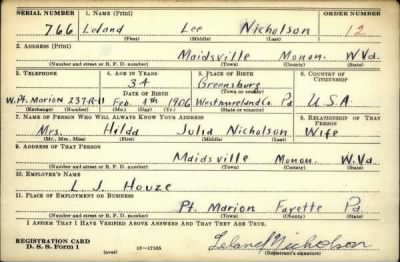 SERIAL NUMBER 1. NAME (Print) ORDER NUMBER
766 Leland Lee Nicholson 12
(First) (Middle) (Last)
2. ADDRESS (Print)
Maidsville Monon. W.Va.
(Number and street or R. F. D. number) (Town) (County) (State)
3. TELEPHONE 4. AGE IN YEARS 5. PLACE OF BIRTH 6. COUNTRY OF CITIZENSHIP
34 Greensburg
DATE OF BIRTH (Town or county)
W.Pt. Marion 237-R-11 Feb. 4th 1906 Westmoreland Co. Pa U.S.A.
(Exchange) (Number) (Mo.) (Day) (Yr.) (State or country)
7. NAME OF PERSON WHO WILL ALWAYS KNOW YOUR ADDRESS 8. RELATIONSHIP OF THAT PERSON
Mrs. Hilda Julia Nicholson Wife
(Mr., Mrs., Miss) (First) (Middle) (Last)
9. ADDRESS OF THAT PERSON
Maidsville Monon. W.Va.
(Number and street or R. F. D. number) (Town) (County) (State)
10. EMPLOYER'S NAME
L. J. Houze
11. PLACE OF EMPLOYMENT OR BUSINESS
Pt. Marion Fayette Pa
(Number and street or R. F. D. number) (Town) (County) (State)
I AFFIRM THAT I HAVE VERIFIED ABOVE ANSWERS AND THAT THEY ARE TRUE.
REGISTRATION CARD
D. S. S. Form 1 (over) 16—17105 Leland Nicholson
(Registrant's signature)